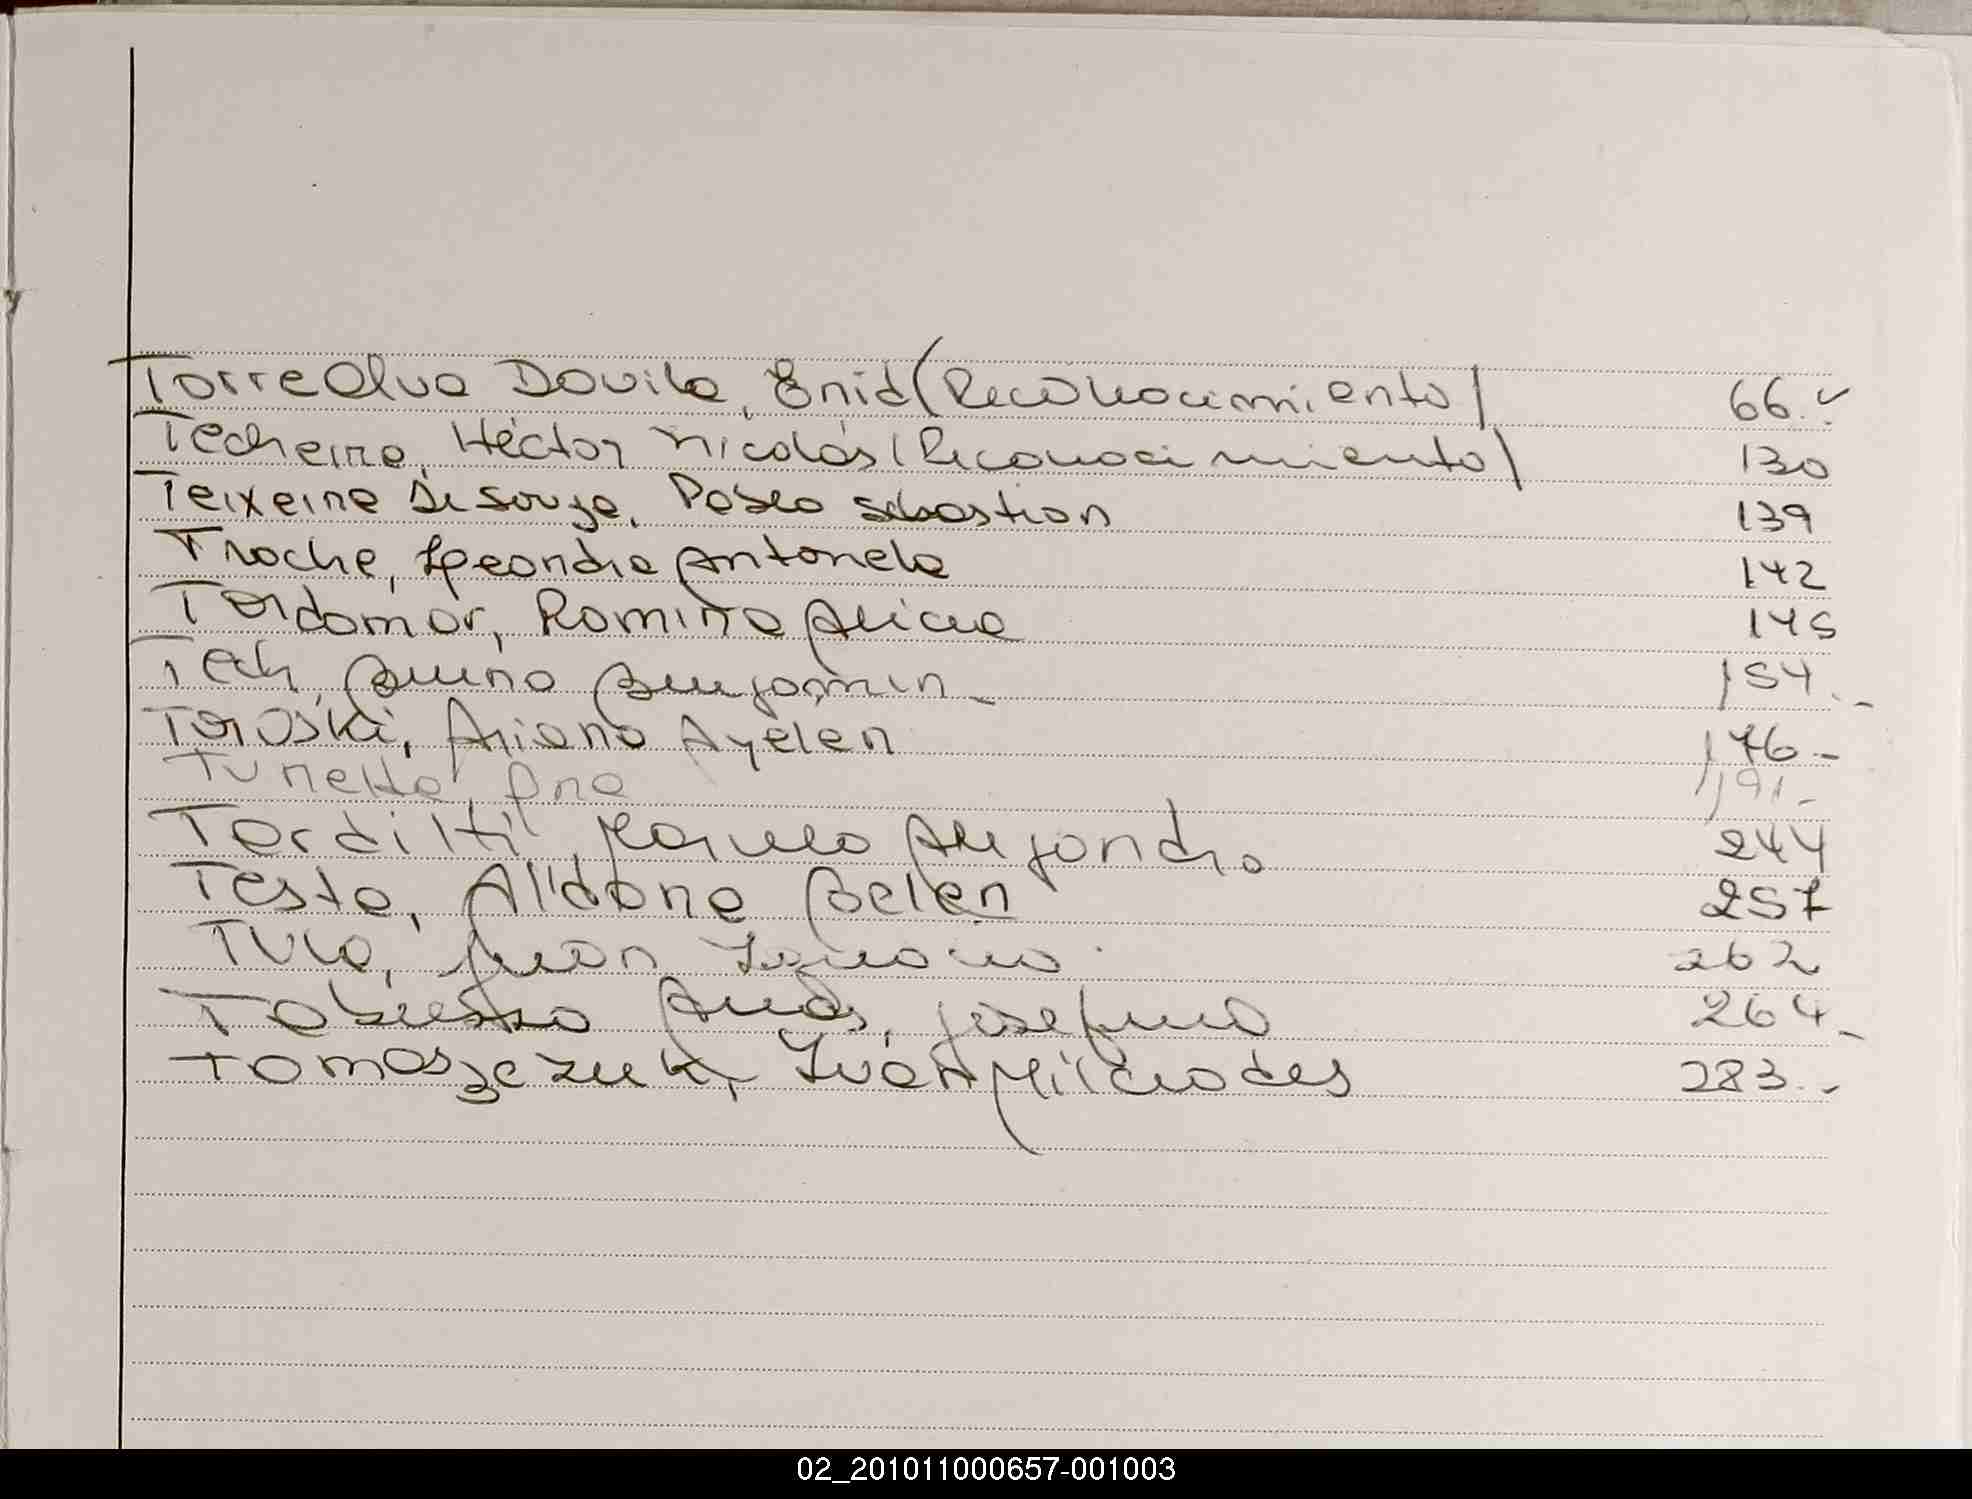 Torrealva Davila, Enid (Reconocimiento) 66.
Techeira, Héctor Nicolás (Reconocimiento) 130
Teixeira De Souza, Pablo Sebastian 139
Troche, Leandra Antonela 142
Tordomar, Romina Alicia 145
Tech, Benjamin 154.-
Toroski, Ariana Ayelen 176-
Turetta, Ana 191.-
Tarditti, Marcelo Alejandro 244
Testa, Aldana Belen 257
Tula, Juan Ignacio. 262
Josefina 264-
Tomaszczuk, Ivan Milciades 283.-
02_201011000657-001003